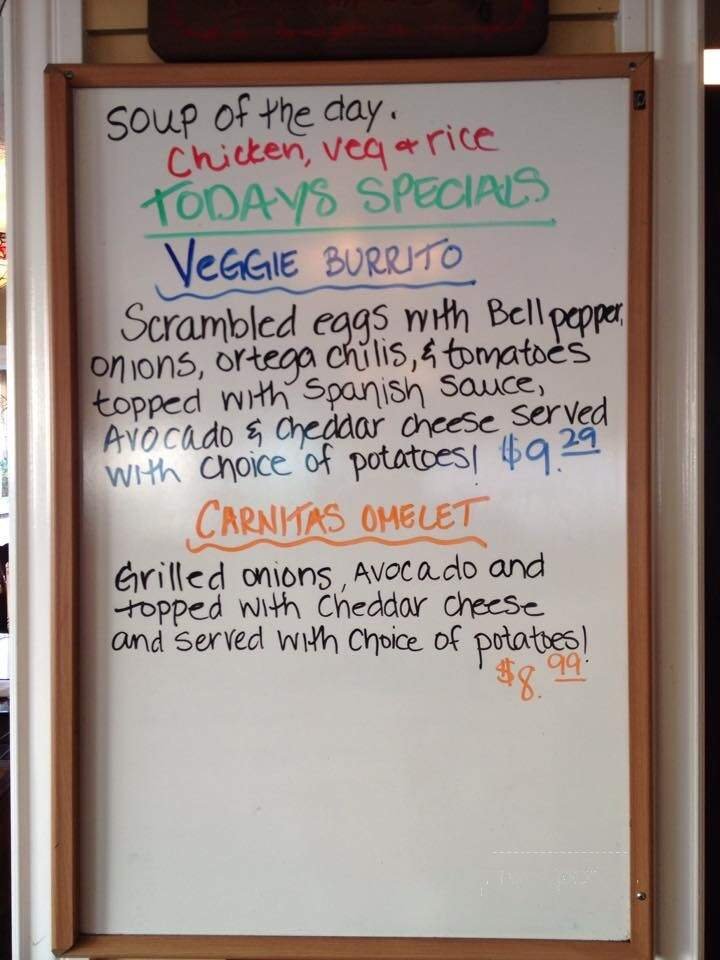 Soup of the day.
Chicken, veg & rice
TODAYS SPECIALS
VEGGIE BURRITO
Scrambled eggs with Bell pepper,
onions, ortega chilis, & tomatoes
topped with Spanish sauce,
Avocado & cheddar cheese served
with choice of potatoes! $9.29
CARNITAS OMELET
Grilled onions, Avocado and
topped with Cheddar cheese
and served with choice of potatoes!
$8.99